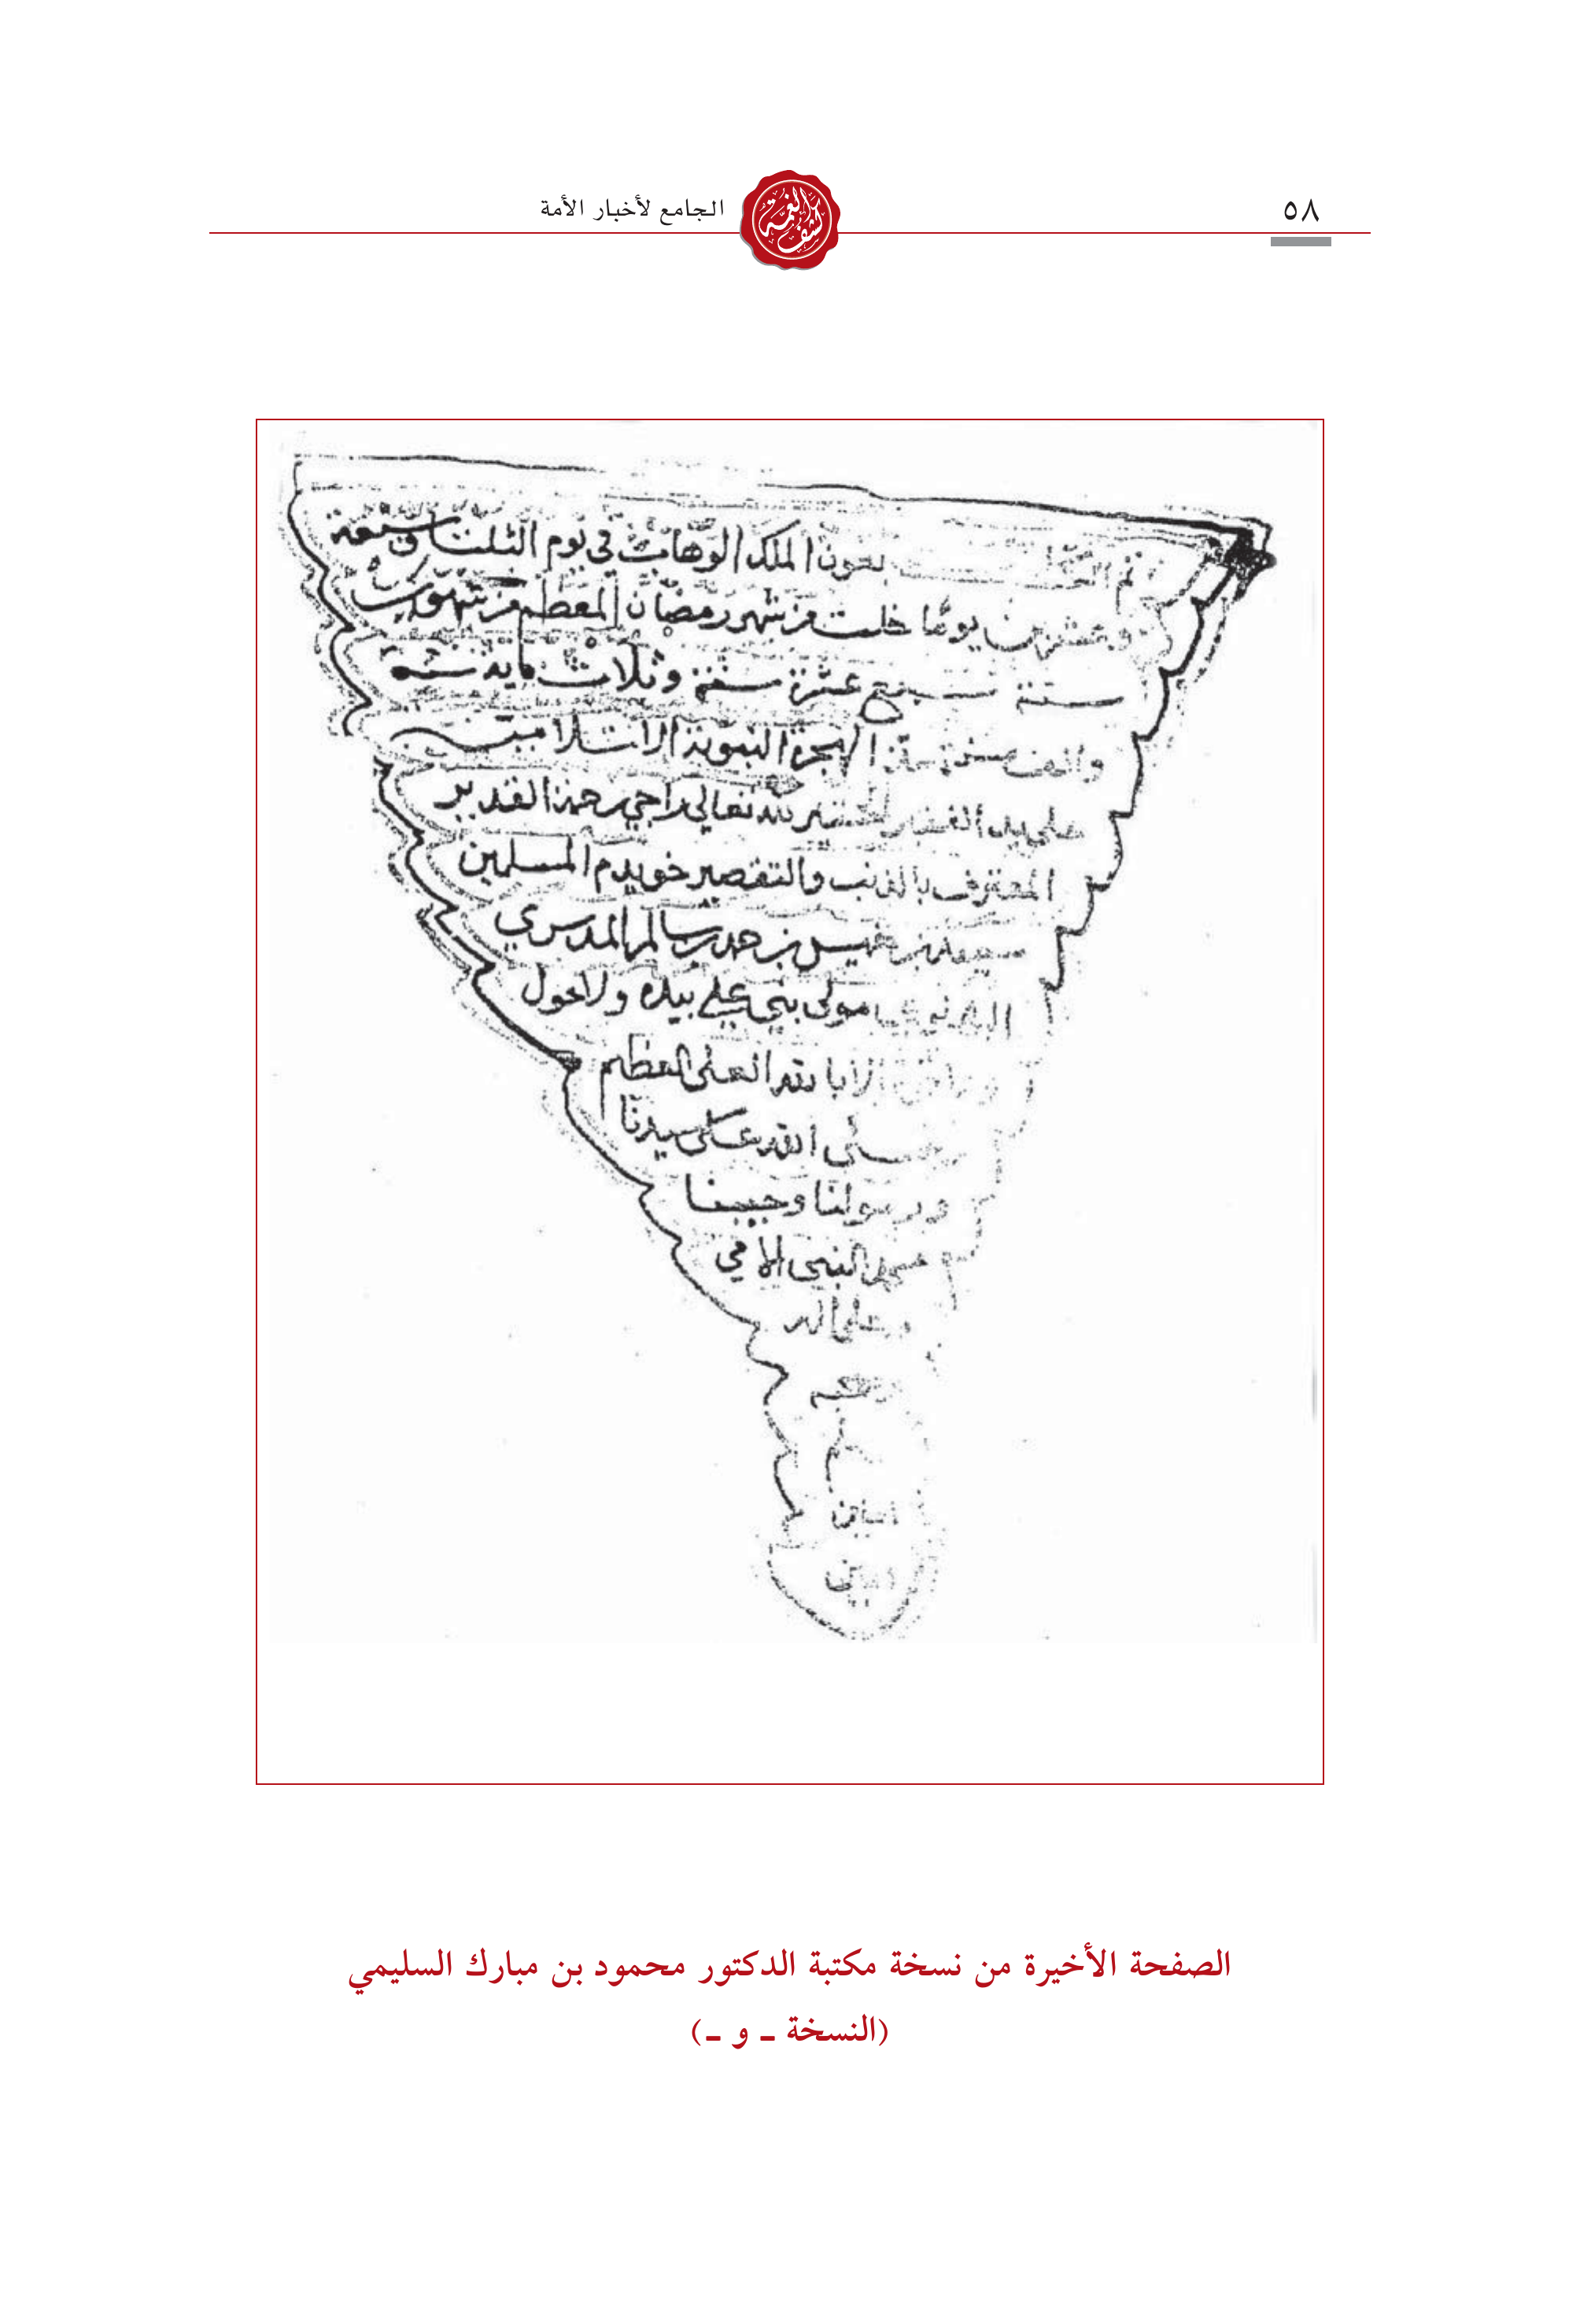 ٥٨
كشف الغمة
الجامع لأخبار الأمة
تم الكتاب بعون الملك الوهاب في يوم الثلثا وتسعة
وعشرين يوما خلت من شهر رمضان المعظم من شهور
سنة سبع عشرة سنة وثلاث ماية سنة
والف سنة الهجرة النبوية الاسلامية
على يد الفقير الحقير لله تعالى راجي رحمة القدير
المعترف بالذنب والتقصير خويدم المسلمين
بن خميس بن حمد بن سالم المدسري
مولى بني علي بيده ولا حول
ولا قوة الا بالله العلي العظيم
وصلى الله على سيدنا
ورسولنا وحبيبنا
محمد النبي الامي
وعلى اله
وصحبه
وسلم
امين
امين
الصفحة الأخيرة من نسخة مكتبة الدكتور محمود بن مبارك السليمي
(النسخة ـ و ـ)